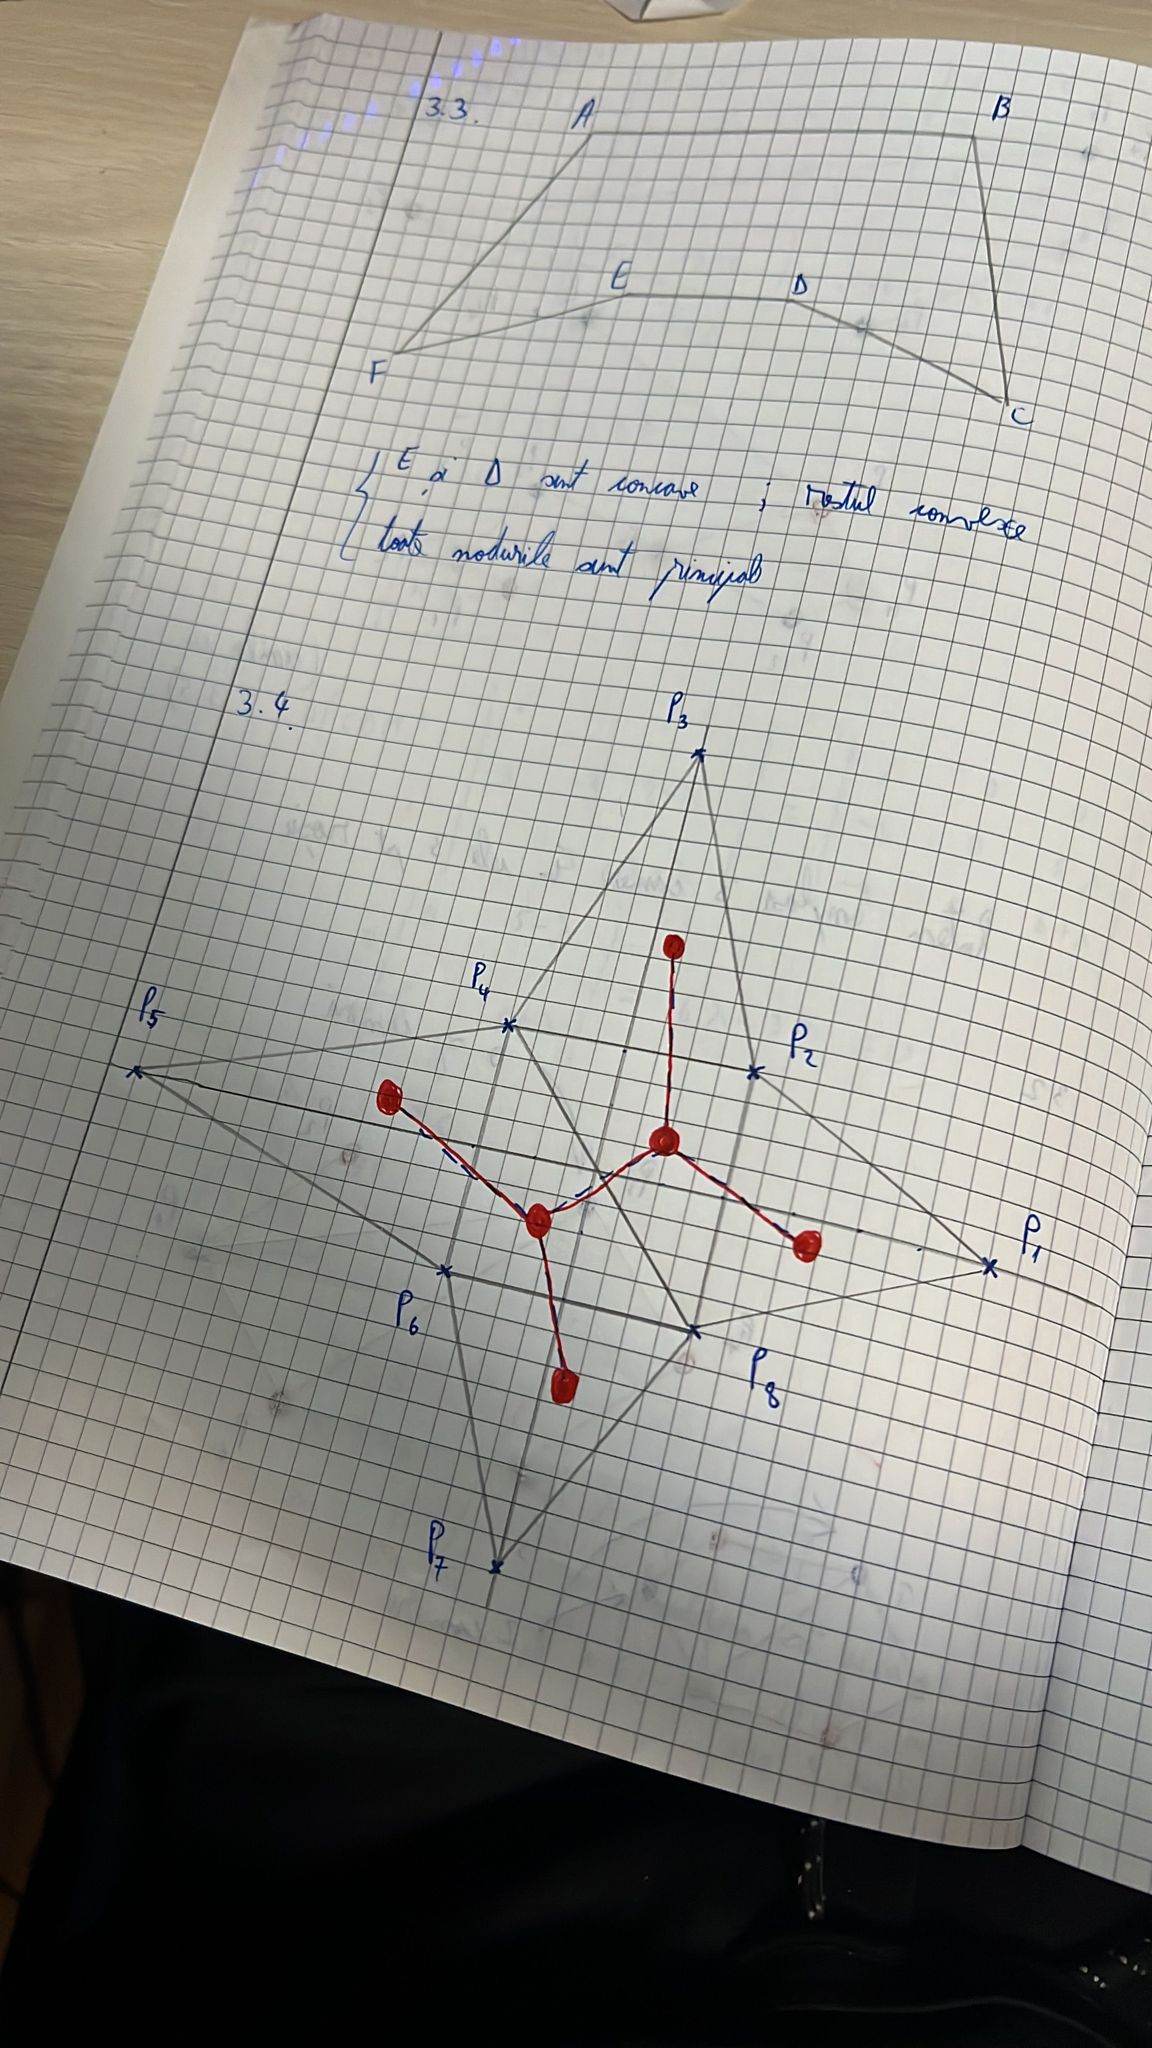 3.3.
A
B
E
D
F
C
E și D sunt concave ; restul convexe
toate nodurile sunt principale
3.4.
P3
P4
P5
P2
P1
P6
P8
P7